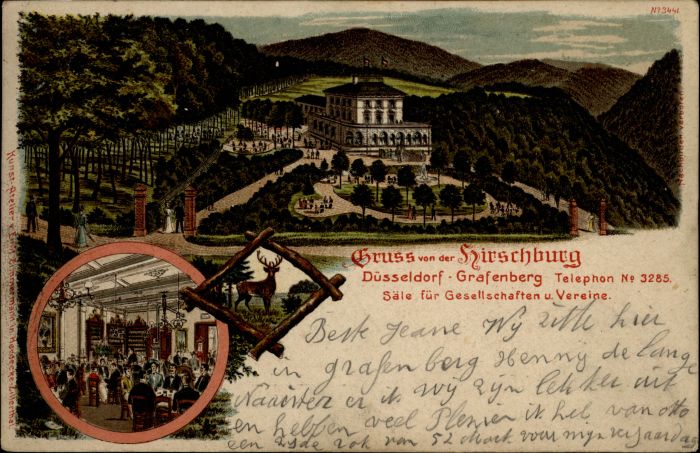 Nº 3441
Gruss von der Hirschburg
Düsseldorf - Grafenberg Telephon Nº 3285.
Säle für Gesellschaften u. Vereine.
Beste Jeane Wy zitte hier
in grafenberg Henny de Lange
en ik wy zyn lekker uit
en hebben veel Plezier ik heb van otto
een zyde rok van 52 Mark voor mijn verjaardag